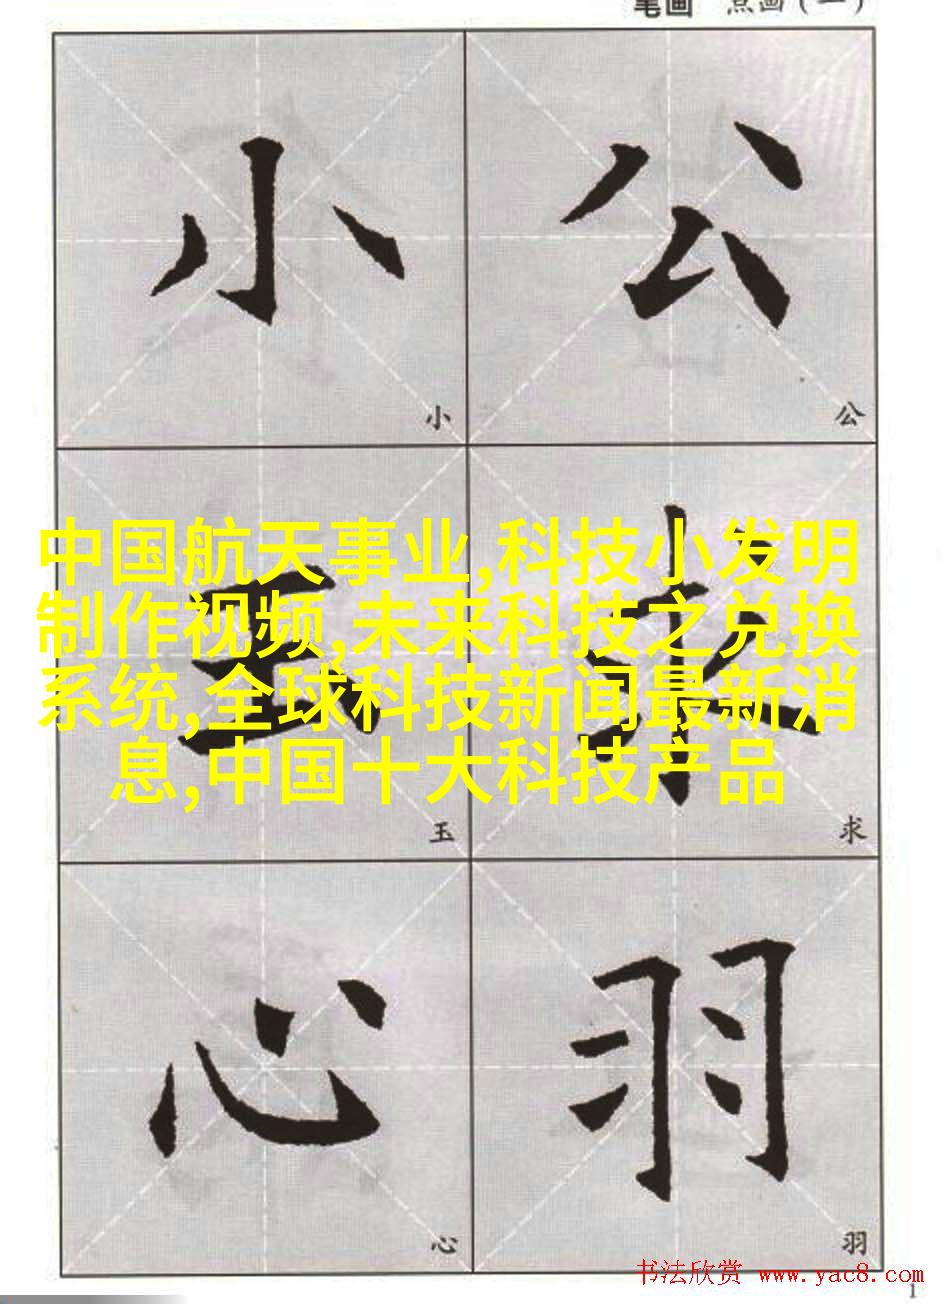 笔画 点画(一)
小 公
小 公
中国航天事业,科技小发明
制作视频,未来科技之兑换
系统,全球科技新闻最新消
息,中国十大科技产品
玉 求
玉 求
心 羽
心 羽
书法欣赏 www.yac8.com
1